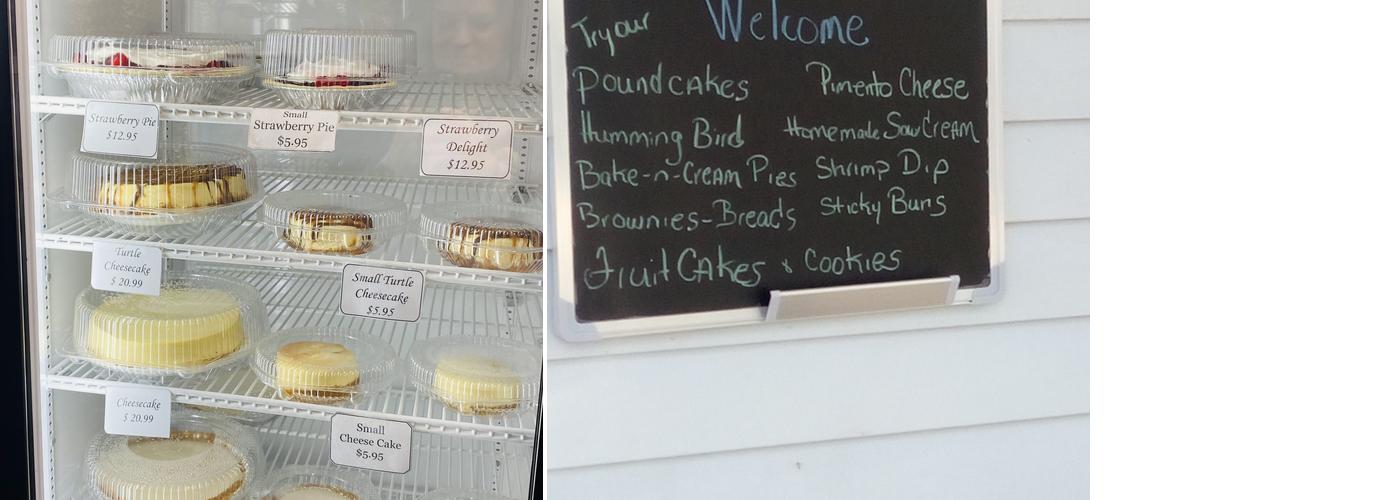 Strawberry Pie
$12.95
Small
Strawberry Pie
$5.95
Strawberry
Delight
$12.95
Turtle
Cheesecake
$ 20.99
Small Turtle
Cheesecake
$5.95
Cheesecake
$ 20.99
Small
Cheese Cake
$5.95
Try our Welcome
Poundcakes Pimento Cheese
Humming Bird Homemade Sour Cream
Bake-n-Cream Pies Shrimp Dip
Brownies-Breads Sticky Buns
Fruit Cakes & Cookies